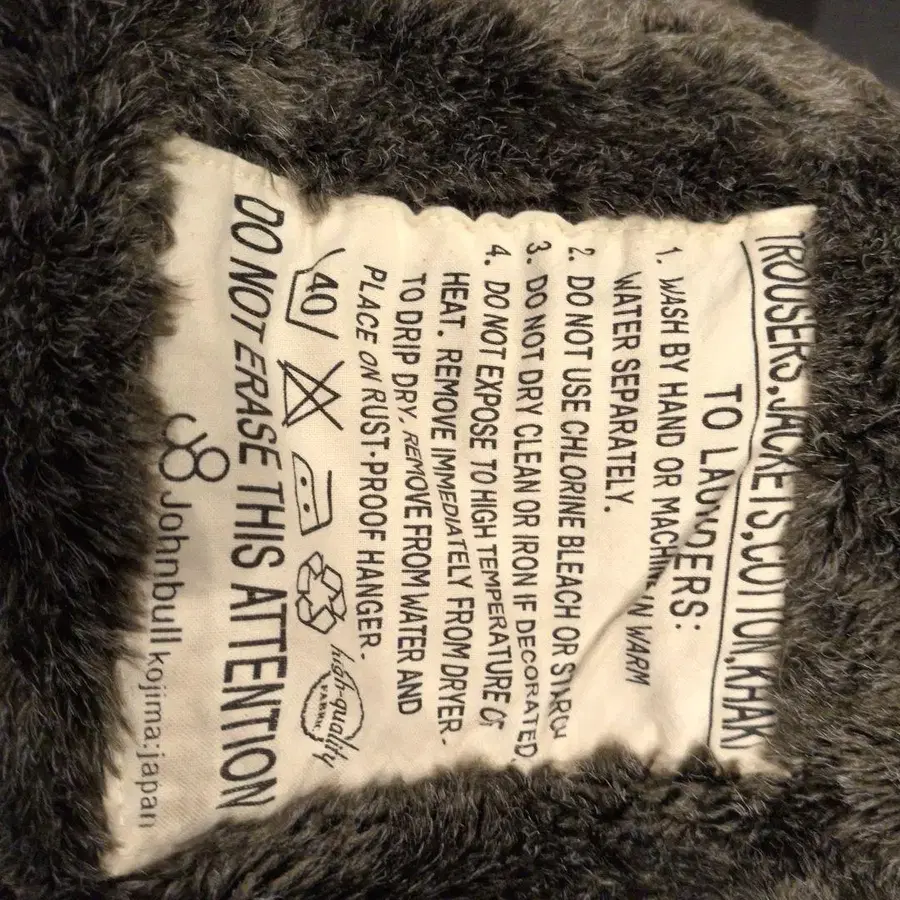 TROUSERS,JACKETS,COTTON,KHAKI
TO LAUNDERS:
1. WASH BY HAND OR MACHINE IN WARM
WATER SEPARATELY.
2. DO NOT USE CHLORINE BLEACH OR STARCH
3. DO NOT DRY CLEAN OR IRON IF DECORATED.
4. DO NOT EXPOSE TO HIGH TEMPERATURE OF
HEAT. REMOVE IMMEDIATELY FROM DRYER.
TO DRIP DRY, REMOVE FROM WATER AND
PLACE ON RUST-PROOF HANGER.
40
high-quality
FABRIC
DO NOT ERASE THIS ATTENTION
Johnbull kojima:japan